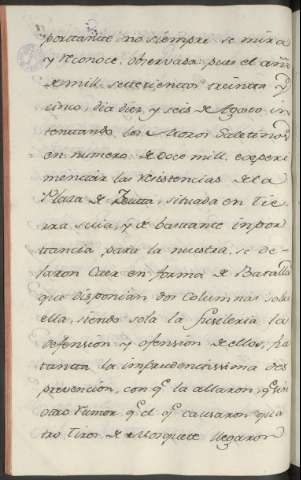 portante no siempre se mira
y reconoce. Observada pues el año
de mill setecientos treinta y
cinco, dia diez, y seis de Agosto in
tentando los Moros Saletinos
en numero, de doce mill, experi
mentar las resistencias de la
Plaza de Zeuta, situada en Tie
rra suia, y de bastante impor
tancia para la nuestra, se de
jaron Caer en forma de Batalla
que disponian dos columnas sobre
ella, siendo sola la fusileria la
defension y ofension de ellos,
tanta la imprudentissima des
prevencion, con q.e la allaron, q.e sin
otro rumor q.e el q.e causaron qua
tro Tiros de Mosquete llegaron